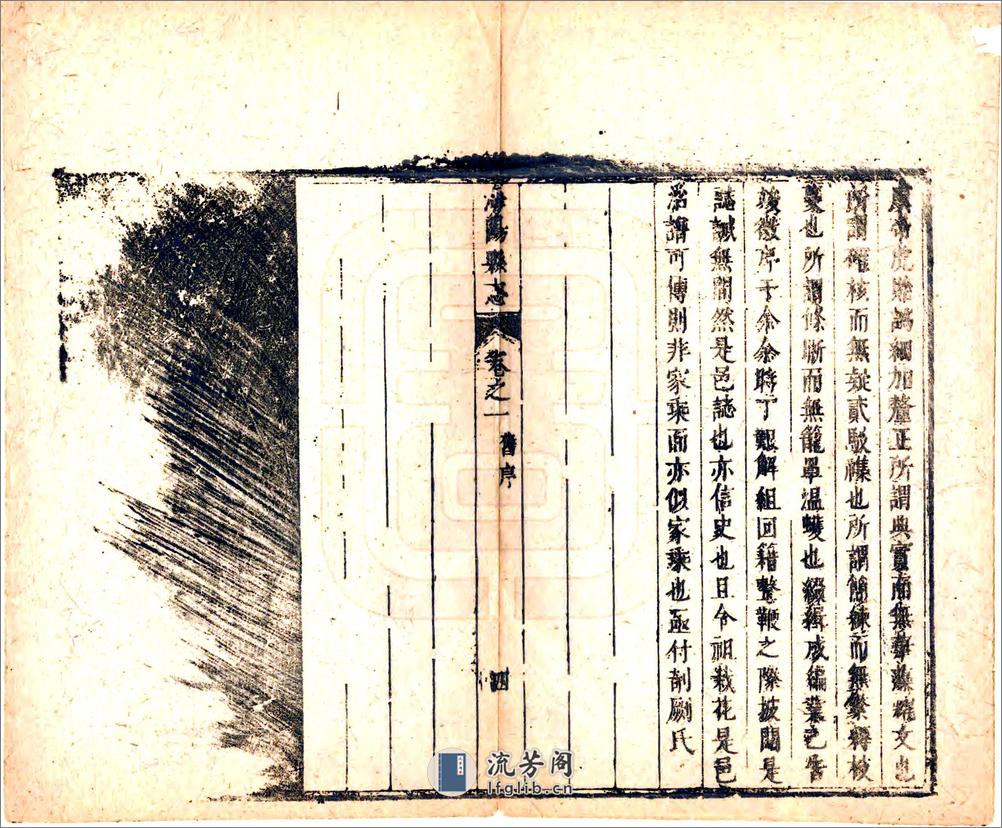 帝虎雖訛細加釐正所謂典實而無舛文也
所謂確核而無疑貳駁襍也所謂簡練而無繁
也所謂條晰而無籠罩温也綴緝成編業已告
竣徵序于余余時丁艱解組回籍整鞭之際披閱是
誌誠無間然是邑誌也亦信史也且令祖栽花是邑
治譜可傳則非家乘而亦似家乘也亟付剞劂氏
陽縣志
卷之一
舊序
四
流芳阁
lfglib.cn